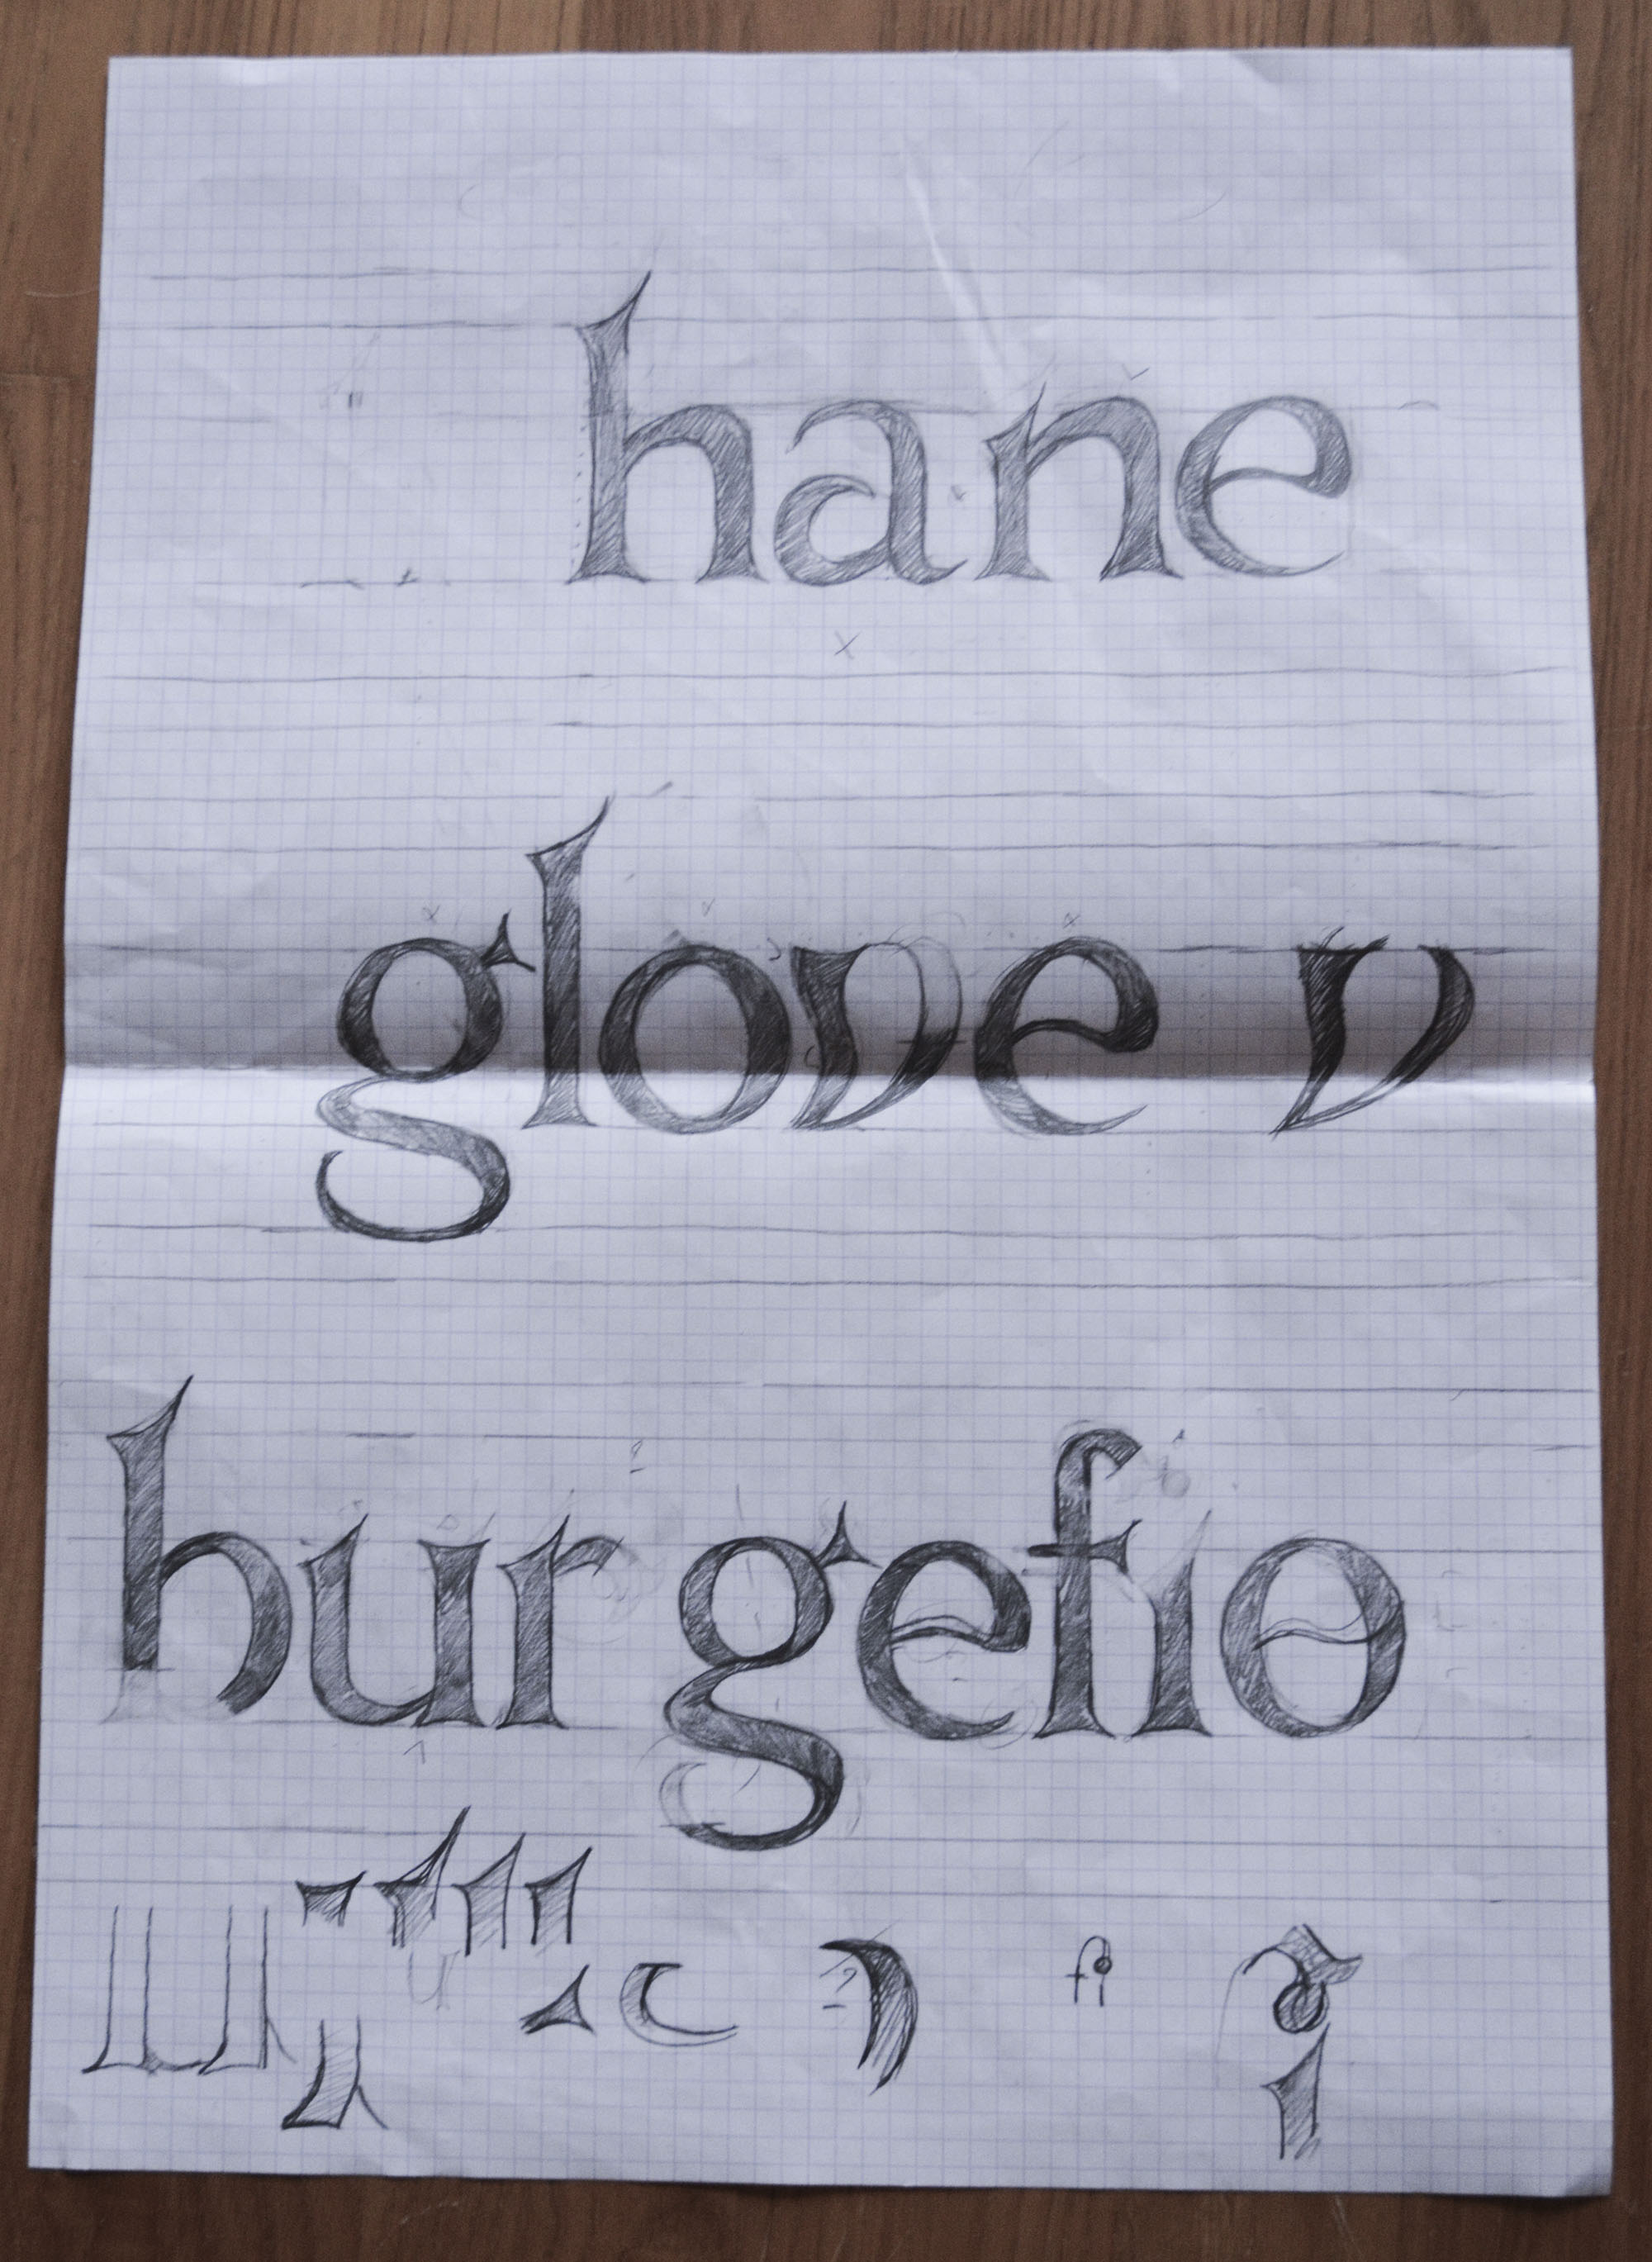 hane
glove v
hurgefio
fi